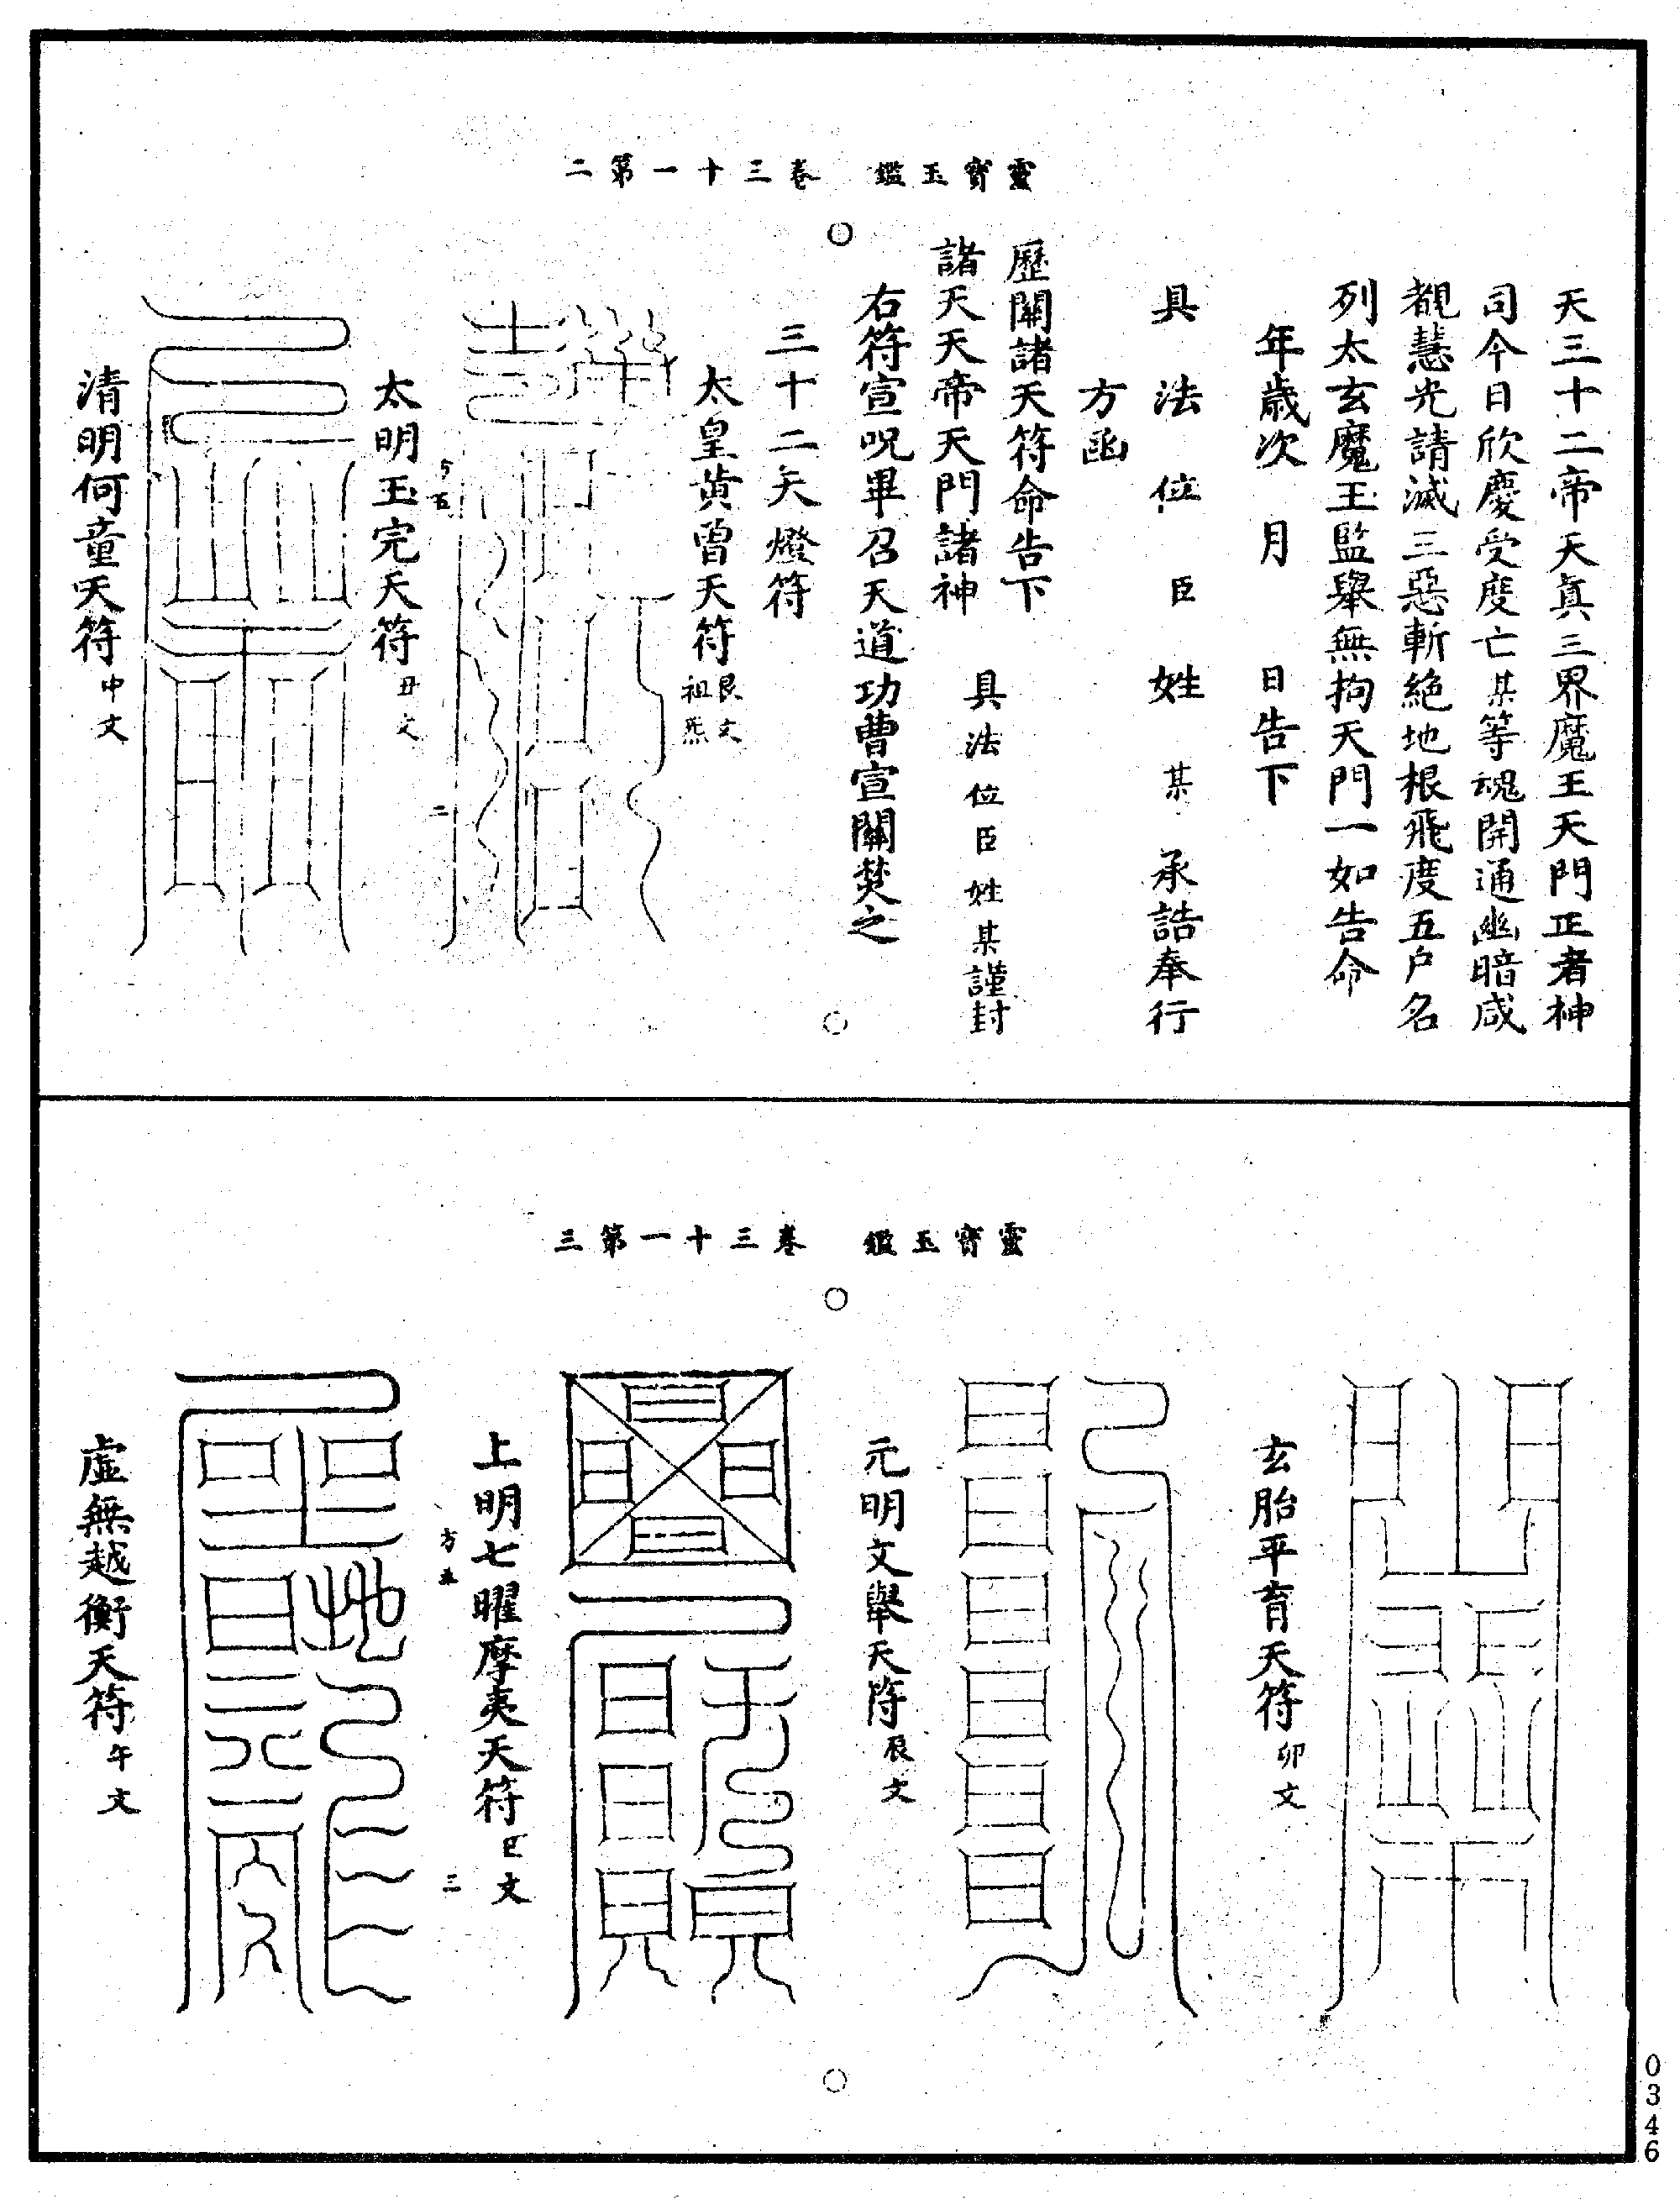 靈寶玉鑑　卷三十一第二
天三十二帝天真三界魔王天門正者神
司今日欣慶受度亡某等魂開通幽暗咸
覩慧光請滅三惡斬絕地根飛度五戶名
列太玄魔王監舉無拘天門一如告命
年歲次　月　　日告下
具　法　位　臣　姓　某　承誥奉行
方函
歷關諸天符命告下
諸天天帝天門諸神　具法位臣姓某謹封
右符宣呪畢召天道功曹宣關焚之
三十二天燈符
太皇黃曾天符艮文祖炁
太明玉完天符丑文
二
清明何童天符中文
靈寶玉鑑　卷三十一第三
玄胎平育天符卯文
元明文舉天符辰文
上明七曜摩夷天符巳文
三
虛無越衡天符午文
0346